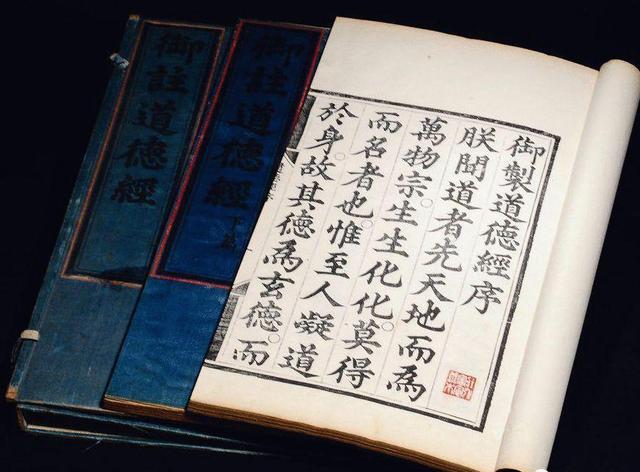 御製道德經序
朕聞道者先天地而為
萬物宗生生化化莫得
而名者也惟至人凝道
於身故其德為玄德而
御註道德經
下篇
御註道德經